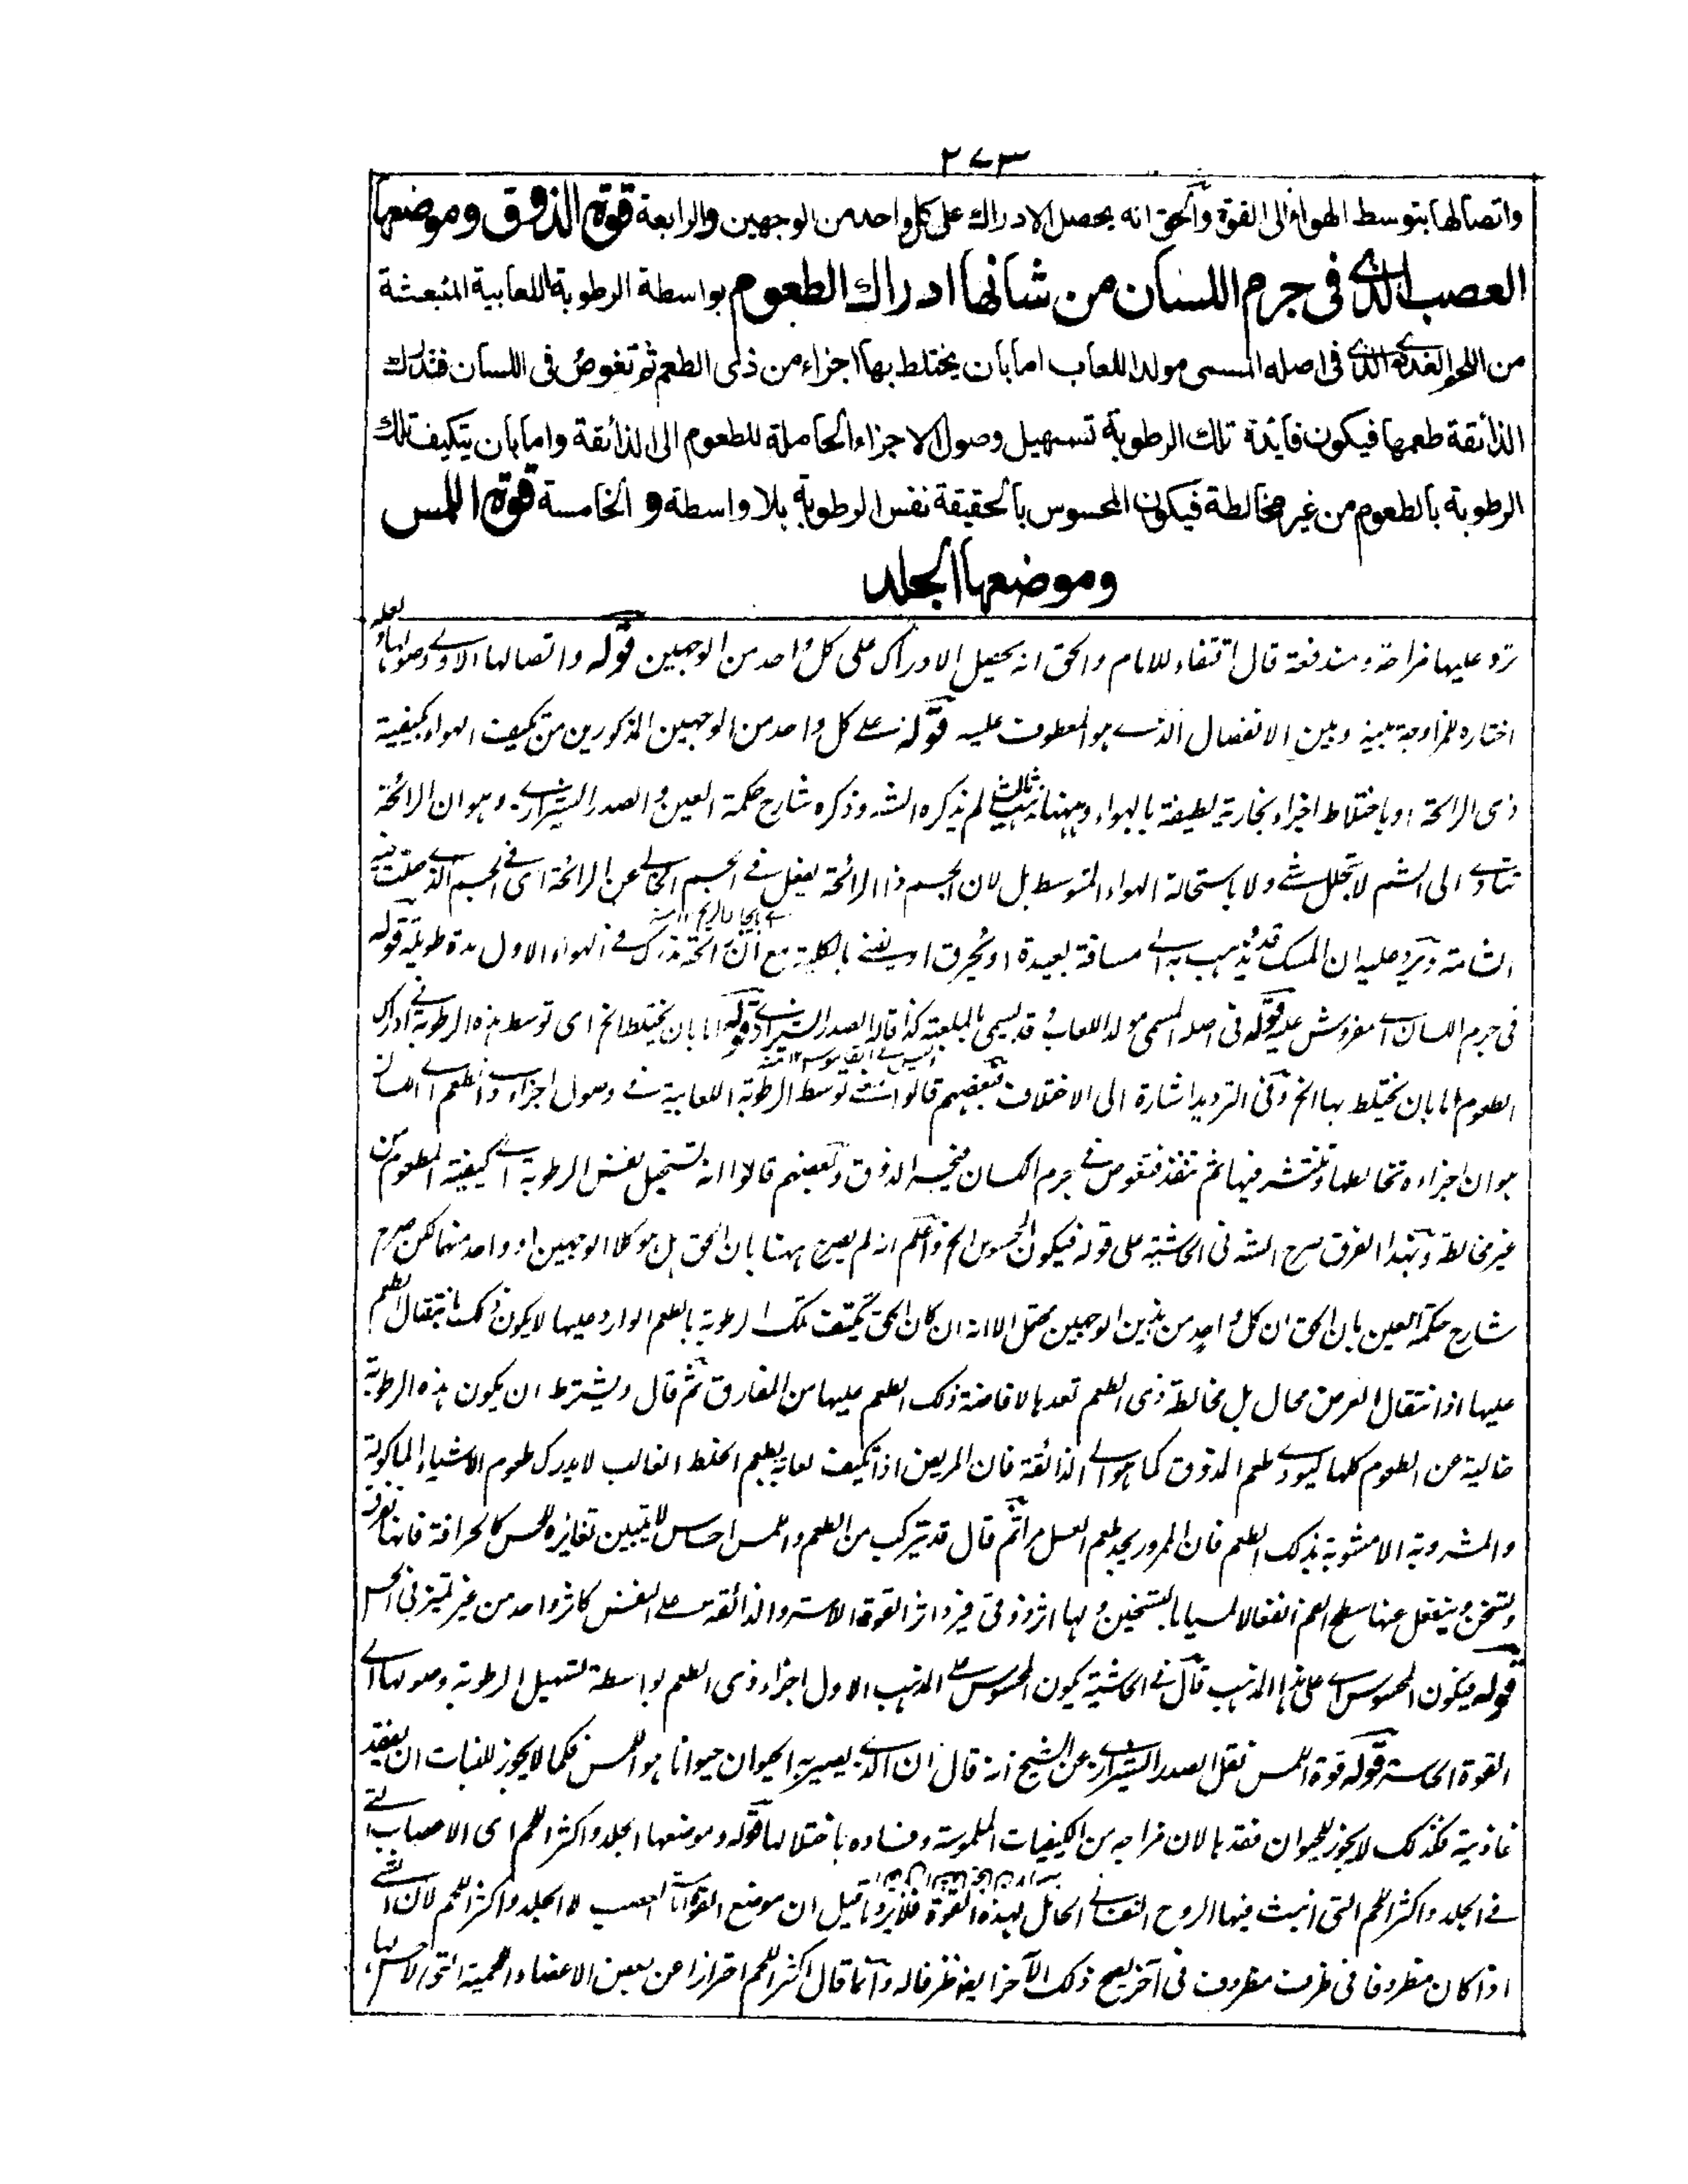 ٢٧٣
واتصالها بتوسط الهواء الى القوة والحق انه يحصل الادراك على كل واحد من الوجهين والرابعة قوة الذوق وموضعها
العصب الذى فى جرم اللسان من شانها ادراك الطعوم بواسطة الرطوبة اللعابية المنبعثة
من اللحم الغددى الذى فى اصله المسمى مولد اللعاب اما بان يختلط بها اجزاء من ذى الطعم ثم تغوص فى اللسان فتدرك
الذائقة طعمها فيكون فايدة تلك الرطوبة تسهيل وصول الاجزاء الحاملة للطعوم الى الذائقة واما بان يتكيف تلك
الرطوبة بالطعوم من غير مخالطة فيكون المحسوس بالحقيقة نفس الرطوبة بلا واسطة و الخامسة قوة اللمس
وموضعها الجلد
ترد عليها مزاحة ومندفعة قال اقتفاء للامام والحق انه يحصل الادراك على كل واحد من الوجهين قوله واتصالها الاولى وصولها ولعله
اختاره للمزاوجة بينه وبين الانفصال الذى هو المعطوف عليه قوله على كل واحد من الوجهين المذكورين من تكيف الهواء بكيفية
ذى الرائحة او باختلاط اجزاء بخارية لطيفة بالهواء وههنا مذهب ثالث لم يذكره الشه وذكره شارح حكمة العين والصدر الشيرازى وهو ان الرائحة
تتادى الى الشم لا بتحلل شئ ولا باستحالة الهواء المتوسط بل لان الجسم ذا الرائحة يفعل فى الجسم الخالى عن الرائحة اى فى الجسم الذى حلت فيه
الشامة ويرد عليه ان المسك قد يذهب به الى مسافة بعيدة او يحرق او يفنى بالكلية مع ان رائحته تدرك فى الهواء الاول مدة طويلة قوله
فى جرم اللسان اى مفروش عليه قوله فى اصله المسمى مولد اللعاب وقد يسمى بالملعبة كذا قاله الصدر الشيرازى قوله اما بان يختلط الخ اى توسط هذه الرطوبة فى ادراك
الطعوم اما بان يختلط بها الخ وفى الترديد اشارة الى الاختلاف فبعضهم قالوا ان توسط الرطوبة اللعابية فى وصول اجزاء ذى الطعم الى اللسان
هو ان اجزاءه تخالطها وتنتشر فيها ثم تنفذ فتغوص فى جرم اللسان فيحسه الذوق وبعضهم قالوا انه تستحيل نفس الرطوبة الى كيفية المطعوم من
غير مخالطة وبهذا الفرق صرح الشه فى الحاشية على قوله فيكون المحسوس الخ واعلم انه لم يصرح ههنا بان الحق هل هو كلا الوجهين او واحد منهما لكن صرح
شارح حكمة العين بان الحق ان كل واحد من هذين الوجهين محتمل الا انه ان كان الحق تكيف تلك الرطوبة بالطعم الوارد عليها لا يكون ذلك بانتقال الطعم
عليها اذ انتقال العرض محال بل مخالطة ذى الطعم تعدها لافاضة ذلك الطعم عليها من المفارق ثم قال ويشترط ان يكون هذه الرطوبة
خالية عن الطعوم كلها ليؤدى طعم المذوق كما هو الى الذائقة فان المريض اذا تكيف لعابه بطعم الخلط الغالب لا يدرك طعوم الاشياء الماكولة
والمشروبة الا مشوبة بذلك الطعم فان الممرور يجد طعم العسل مرا ثم قال قد يتركب من الطعم واللمس احساس لا يتبين تغايره للحس كالحرافة فانها تفرق
وتسخن وينفعل عنها سطح الفم انفعالا لمسيا بالتسخين ولها اثر ذوقى فيرد اثر القوة اللامسة والذائقة على النفس كاثر واحد من غير تميز فى الحس
قوله فيكون المحسوس اى على هذا المذهب قال فى الحاشية يكون المحسوس على المذهب الاول اجزاء ذى الطعم بواسطة تسهيل الرطوبة وصولها الى
القوة الحاسة قوله قوة اللمس نقل الصدر الشيرازى عن الشيخ انه قال ان الذى يصير به الحيوان حيوانا هو اللمس فكما لا يجوز للنبات ان يفقد
غاذية فكذلك لا يجوز للحيوان فقدها لان مزاجه من الكيفيات الملموسة وفساده باختلالها قوله وموضعها الجلد واكثر اللحم اى الاعصاب التى
فى الجلد واكثر اللحم التى انبث فيها الروح النفسانى الحامل لهذه القوة فلا يرد ما قيل ان موضع القوة انما العصب لا الجلد واكثر اللحم لان الشئ
اذا كان مظروفا فى ظرف مظروف فى آخر يصح ذلك الآخر ايضا ظرفا له وانما قال اكثر اللحم احترازا عن بعض الاعضاء اللحمية التى لا حس لها